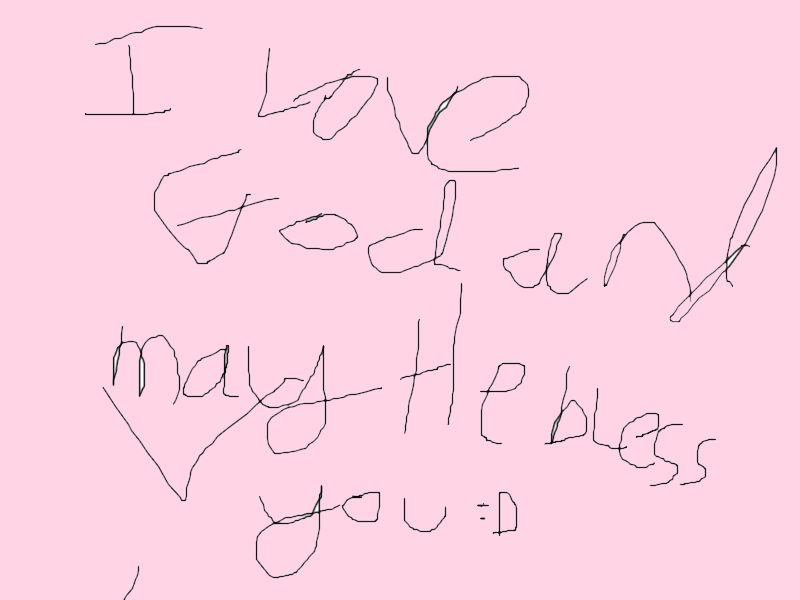 I Love
God and
may He bless
you =D